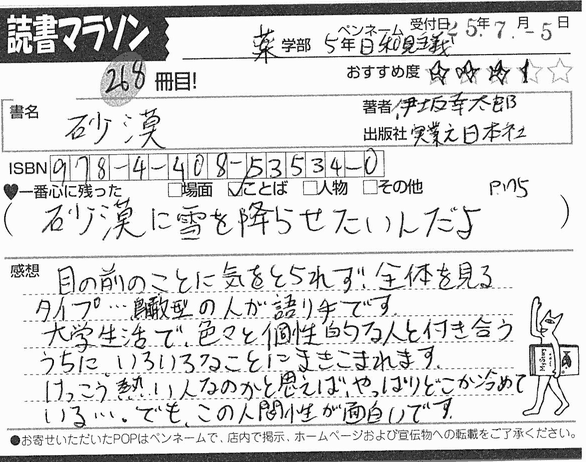 読書マラソン
薬学部 5年 ペンネーム 日和見主義 受付日 25年7.月-5日
268冊目! おすすめ度 ☆☆☆☆☆
書名 砂漠
著者 伊坂幸太郎
出版社 実業之日本社
ISBN 978-4-408-53534-0
♥一番心に残った □場面 ☑ことば □人物 □その他 P.175
(砂漠に雪を降らせたいんだよ)
感想 目の前のことに気をとられず、全体を見る
タイプ…鳥瞰型の人が語り手です。
大学生活で、色々と個性的な人と付き合う
うちに、いろいろなことにまきこまれます。
けっこう熱い人なのかと思えば、やっぱりどこか冷めて
いる…。でも、この人間性が面白いです。
●お寄せいただいたPOPはペンネームで、店内で掲示、ホームページおよび宣伝物への転載をご了承ください。